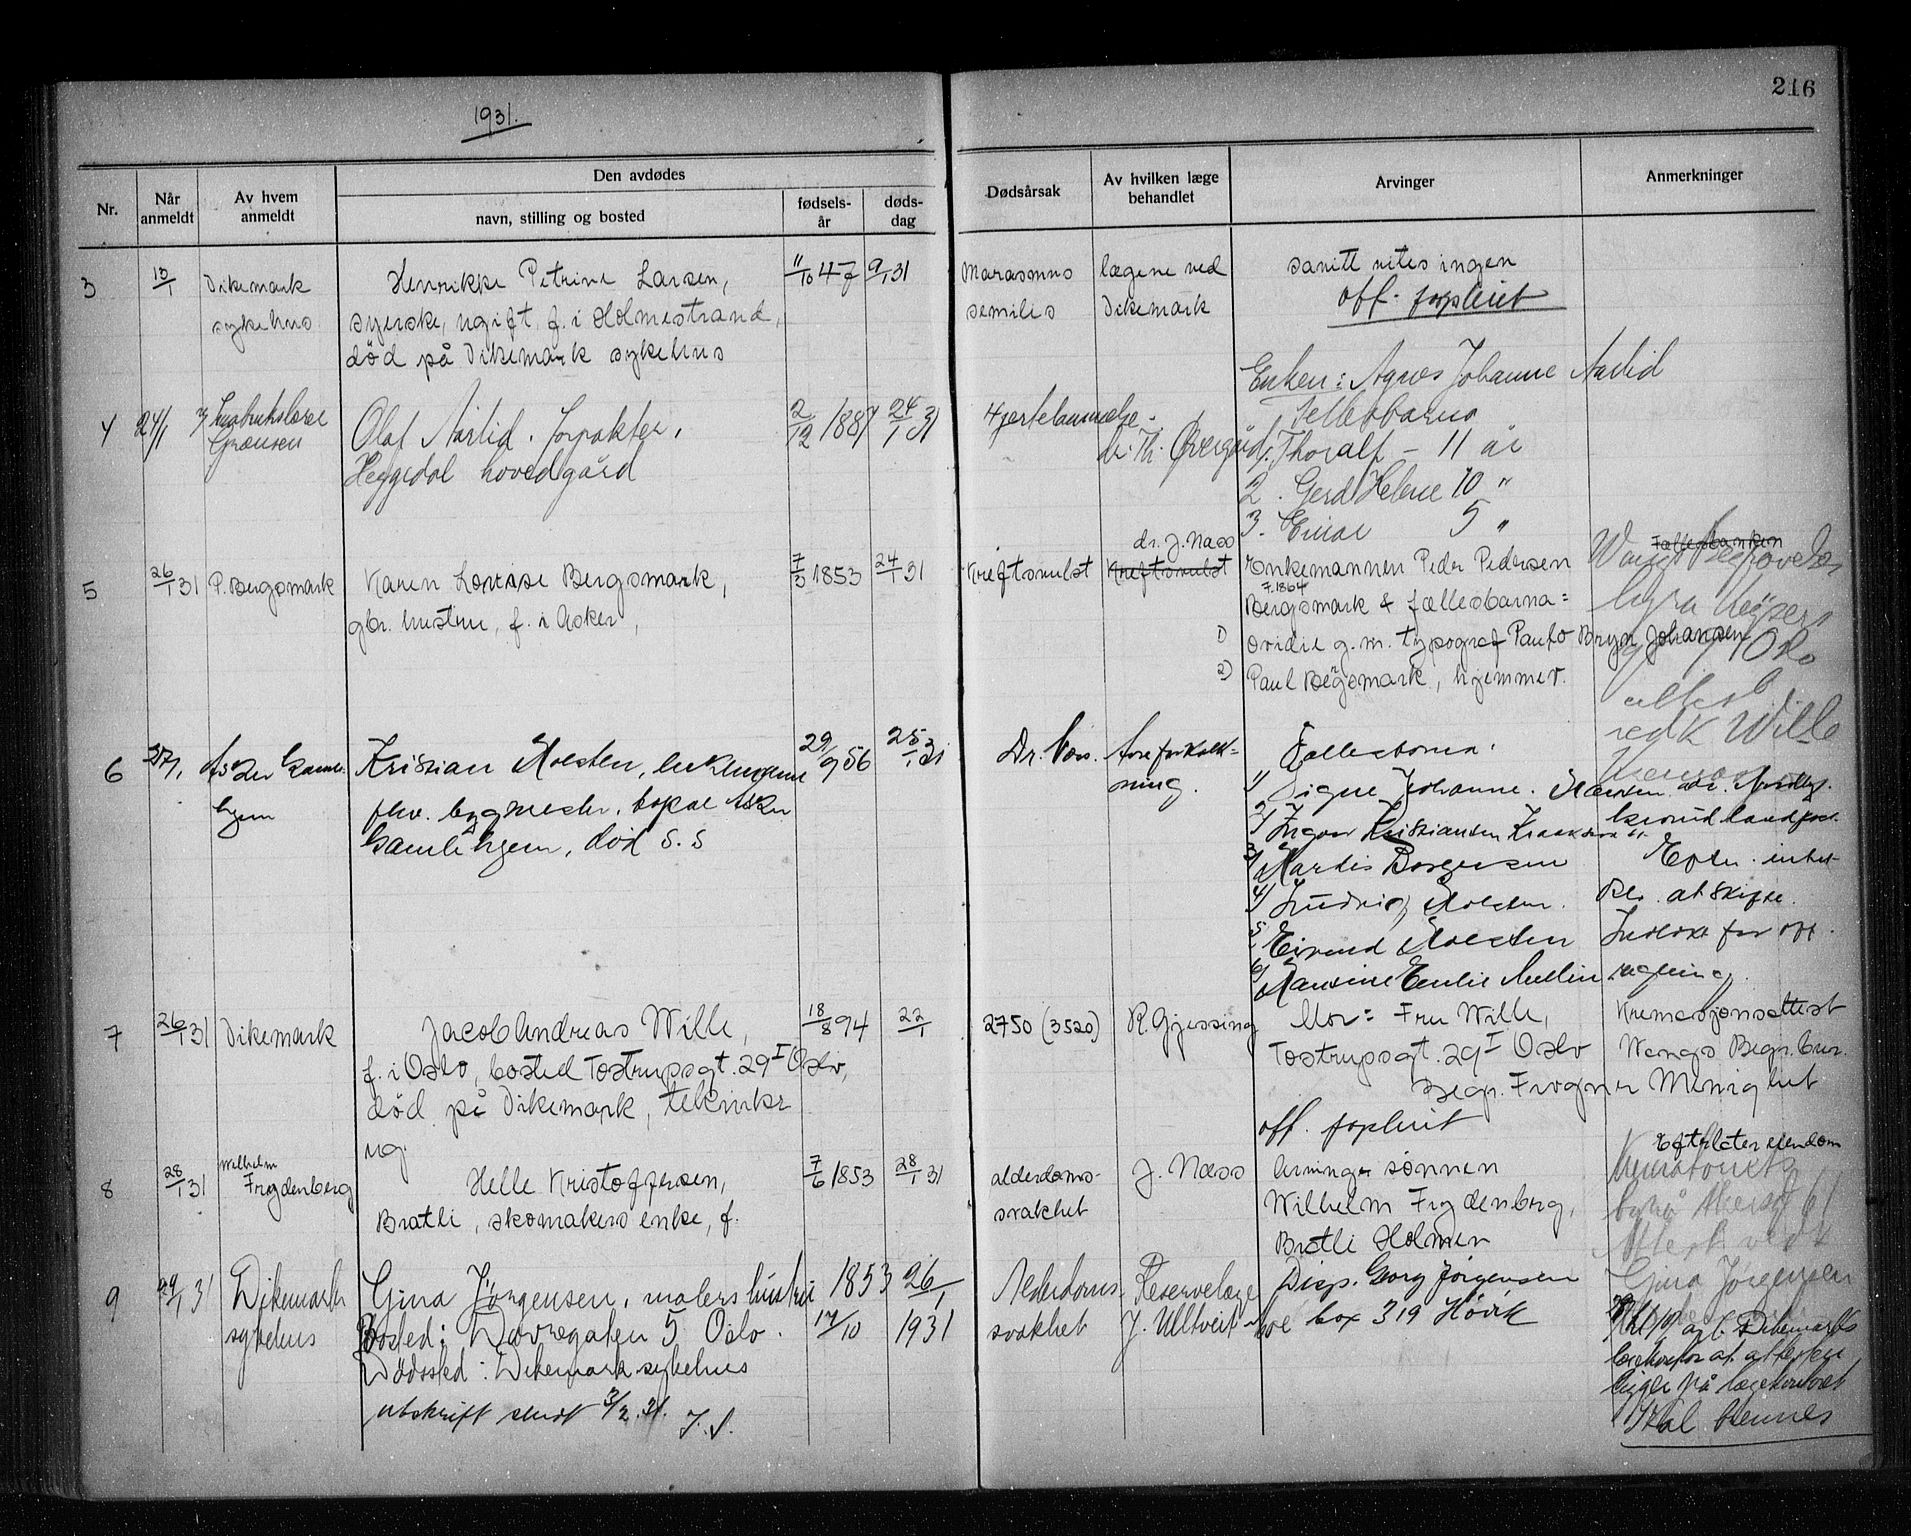 1931.
216
Nr.
Når anmeldt
Av hvem anmeldt
Den avdødes
navn, stilling og bosted
fødsels-år
døds-dag
Dødsårsak
Av hvilken læge behandlet
Arvinger
Anmerkninger
3 13/1 Dikemark sykehus
Henrikke Petrine Larsen,
syerske, ugift, f. i Holmestrand,
død på Dikemark sykehus
11/10 47 9/1 31
Marasmus senilis
lægene ved Dikemark
savitt vites ingen
off. forpleiet
4 24/1
Grænsen
Olaf Aarlid. Forpakter,
Heggedal hovedgård
2/12 1887 24/1 31
Hjertelammelse.
dr. Th. Øvergård
Enken: Agnes Johanne Aarlid
Fellesbarna
1. Thoralf - 11 år
2. Gerd Helene 10 "
3. Einar 5 "
5 26/1 31 P. Bergsmark
Karen Lovise Bergsmark,
gbr. hustru, f. i Asker,
7/3 1853 24/1 31
Kreftsvulst
dr. J. Næss
Kreftsvulst
Enkemannen Pedr Pedersen
f. 1864
Bergsmark & fællesbarna:
1) Ovidie g. m. typograf Paulo Bryn Johansen
2) Paul Bergsmark, hjemmev.
Oslo
attest
ved K Wille
6 27/1 Asker Gamle hjem
Kristian Holsten, enkemann
fhv. bygmester, bopæl Asker
Gamlehjem, død s. s
29/9 56 25/1 31
Dr. Næss. Areforkalkning.
Fællesbarna:
1) Signe Johanne.
2) Ingvar Kristiansen
3) Borgersen
4) Ludvig Holsten.
5) Eivind Holsten
6) Emilie
Efter. intet
at skifte.
7 26/1 31 Dikemark
Jacob Andreas Wille,
f. i Oslo, bosted Tostrupsgt. 29 I Oslo,
død på Dikemark, tekniker
ug.
18/8 94 22/1
2750 (3520)
R. Gjessing
Mor: Fru Wille,
Tostrupsgt. 29 I Oslo
Begr. Frogner Menighet
off. forpleiet
Kremasjonsattest
Wangs Begr. bur.
8 28/1 31 Wilhelm Frydenberg
Helle Kristoffersen,
Bratli, skomakers enke, f.
7/6 1853 28/1 31
alderdoms-
svakhet
J. Næss
Arvinger sønnen
Wilhelm Frydenberg,
Bratli Holmen
Eftelater eiendom
9 29/1 31 Dikemark sykehus
Gina Jørgensen, malers hustru
Bosted: Dovregaten 5 Oslo.
Dødssted: Dikemark sykehus
utskrift sendt 3/2.31. J. S.
1853 17/10
26/1 1931
Alderdoms-
svakhet
Reservelæge
J. Ulltveit-Moe
Disp. Georg Jørgensen
box 319 Høvik
Gina Jørgensen
Dikemarks
at attesten
ligger på lægekontoret